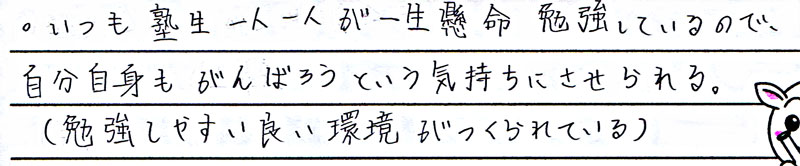 。いつも塾生一人一人が一生懸命勉強しているので、
自分自身もがんばろうという気持ちにさせられる。
(勉強しやすい良い環境がつくられている)